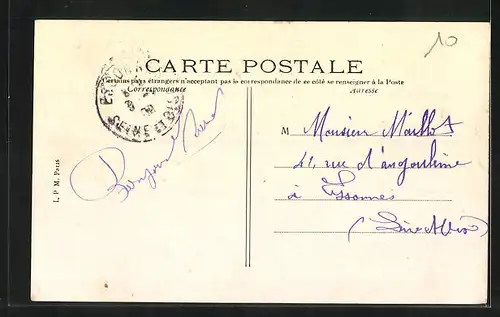 10
CARTE POSTALE
Certains pays étrangers n'acceptant pas la correspondance de ce côté se renseigner à la Poste
Correspondance
Adresse
SEINE ET OISE
M Monsieur Maillot
rue d'angoulême
à Essonnes
(Seine et Oise)
I. P. M. Paris